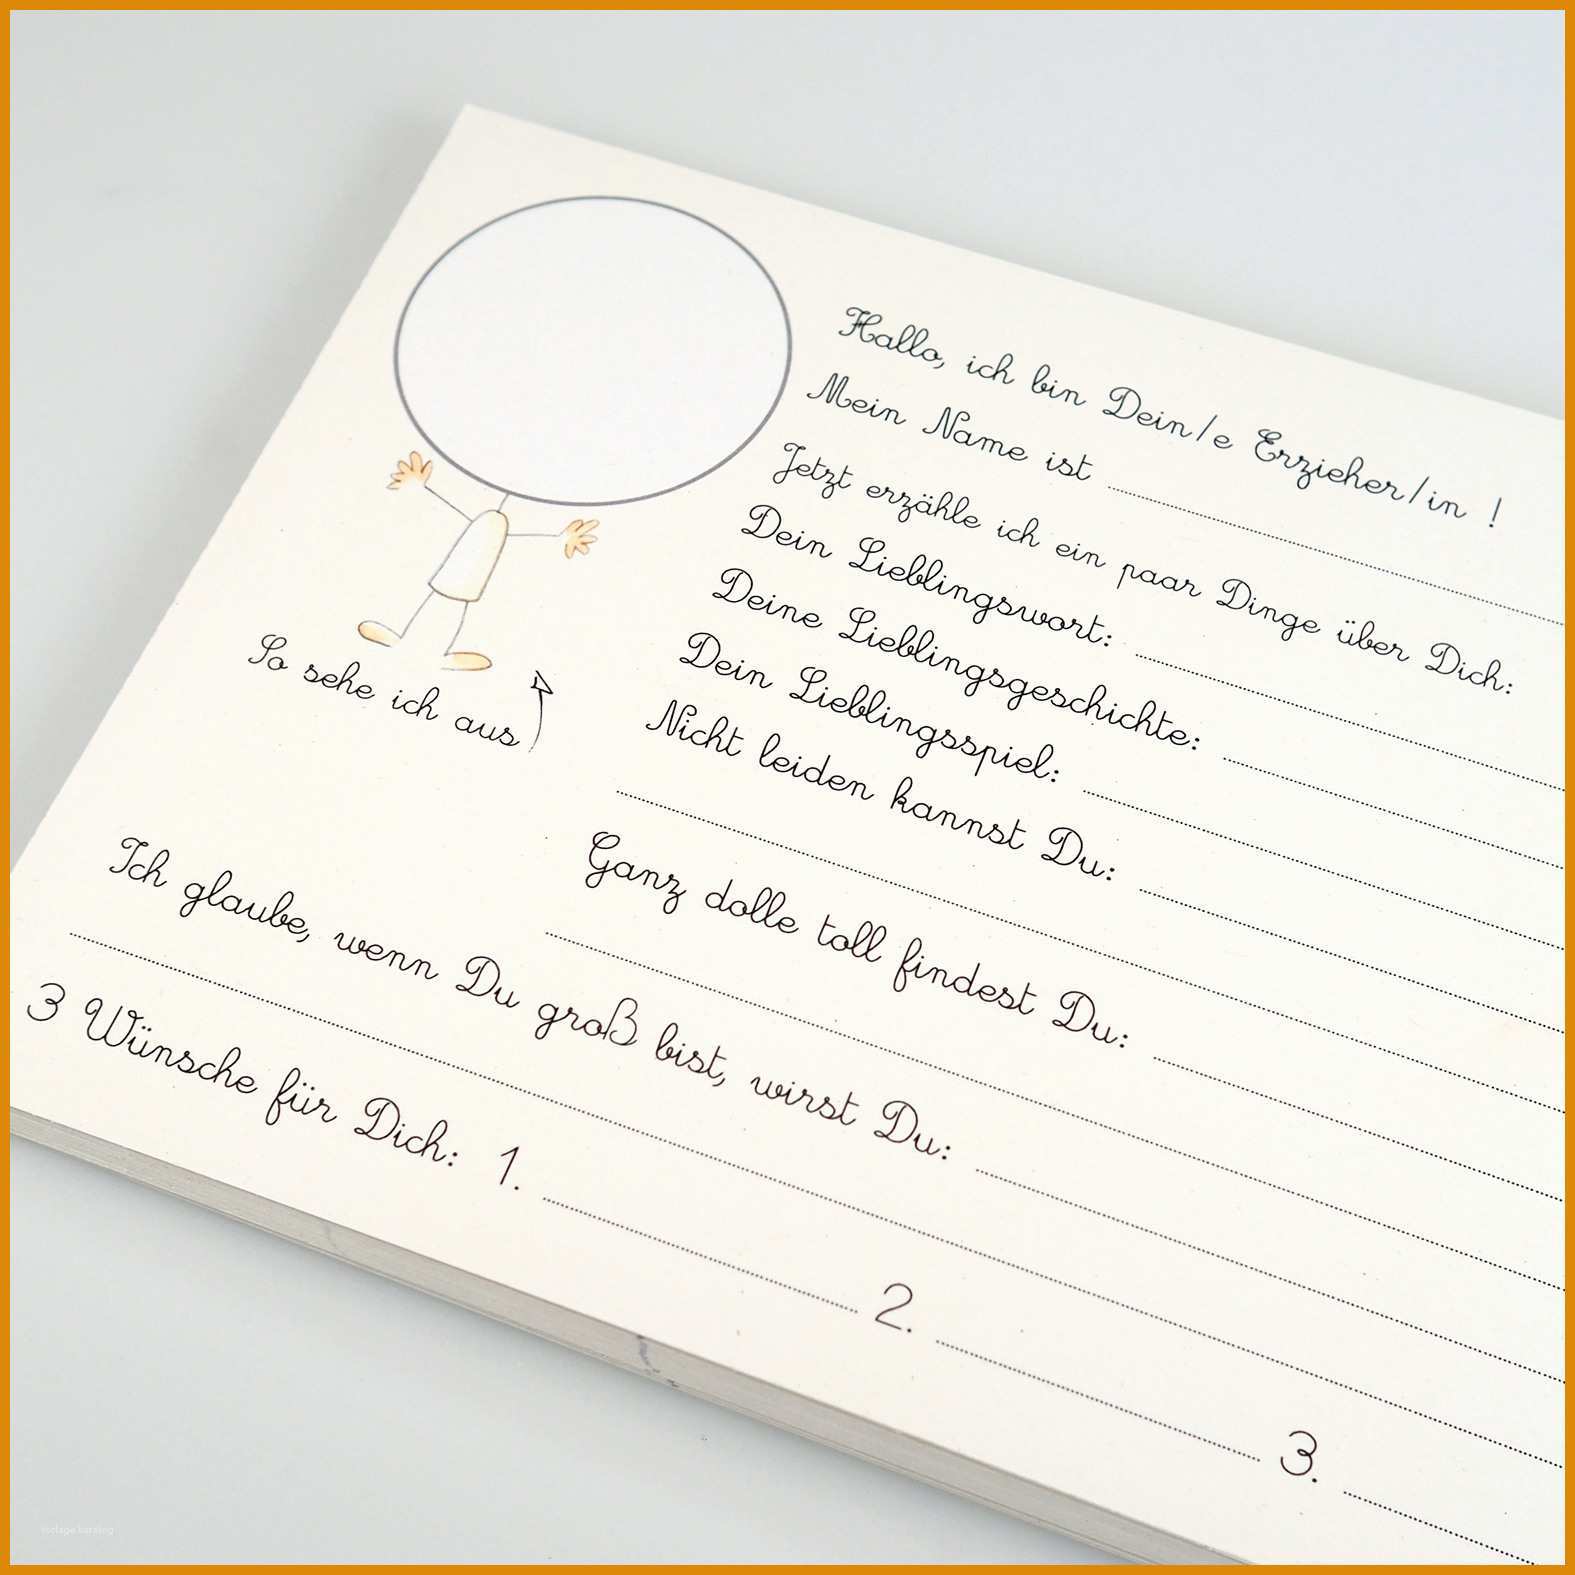 Hallo, ich bin Dein/e Erzieher/in !
Mein Name ist
Jetzt erzähle ich ein paar Dinge über Dich:
Dein Lieblingswort:
Deine Lieblingsgeschichte:
Dein Lieblingsspiel:
Nicht leiden kannst Du:
So sehe ich aus
Ganz dolle toll findest Du:
Ich glaube, wenn Du groß bist, wirst Du:
3 Wünsche für Dich: 1. 2. 3.